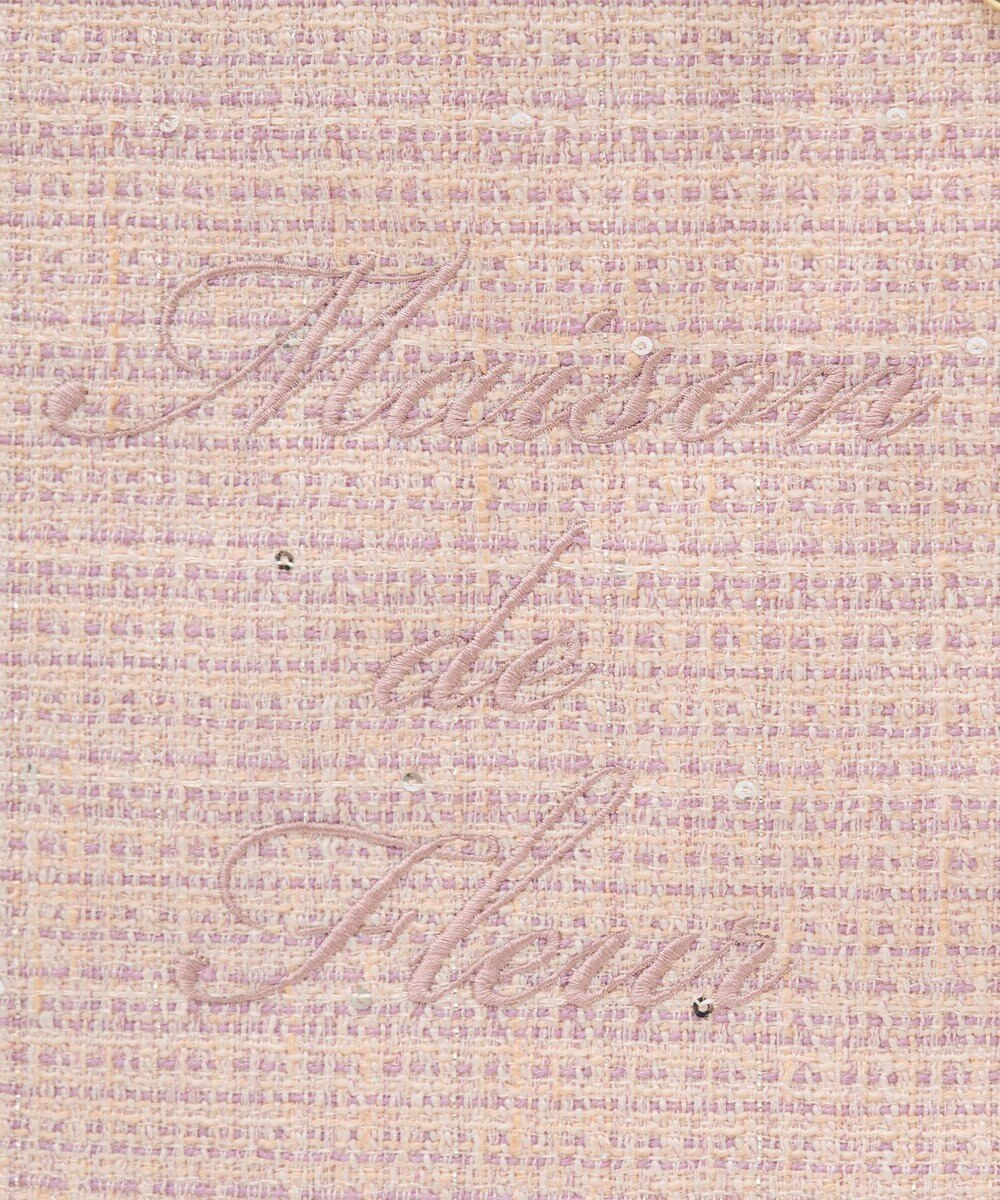 Maison
de
Fleur